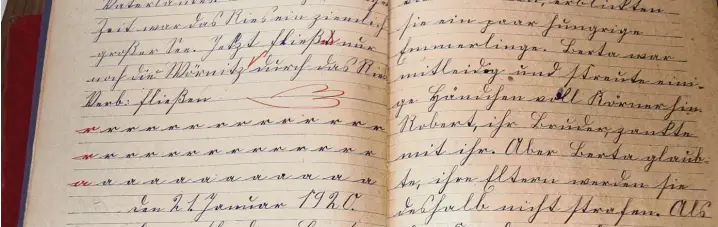 Vaterlandes
Zeit war das Ries ein ziemlich
großer See. Jetzt fließen nur
noch die Wörnitz durch das Rie
Verb: fließen
r r r r r r r r r r r r r
r r r r r r r r r r r r r
a a a a a a a a a a a a
den 21. Januar 1920.
erblickten
sie ein paar hungrige
Emmerlinge. Berta war
mitleidig und streute eini-
ge Händchen voll Körner hin.
Robert, ihr Bruder, zankte
mit ihr. Aber Berta glaub-
te, ihre Eltern werden sie
deshalb nicht strafen. Als